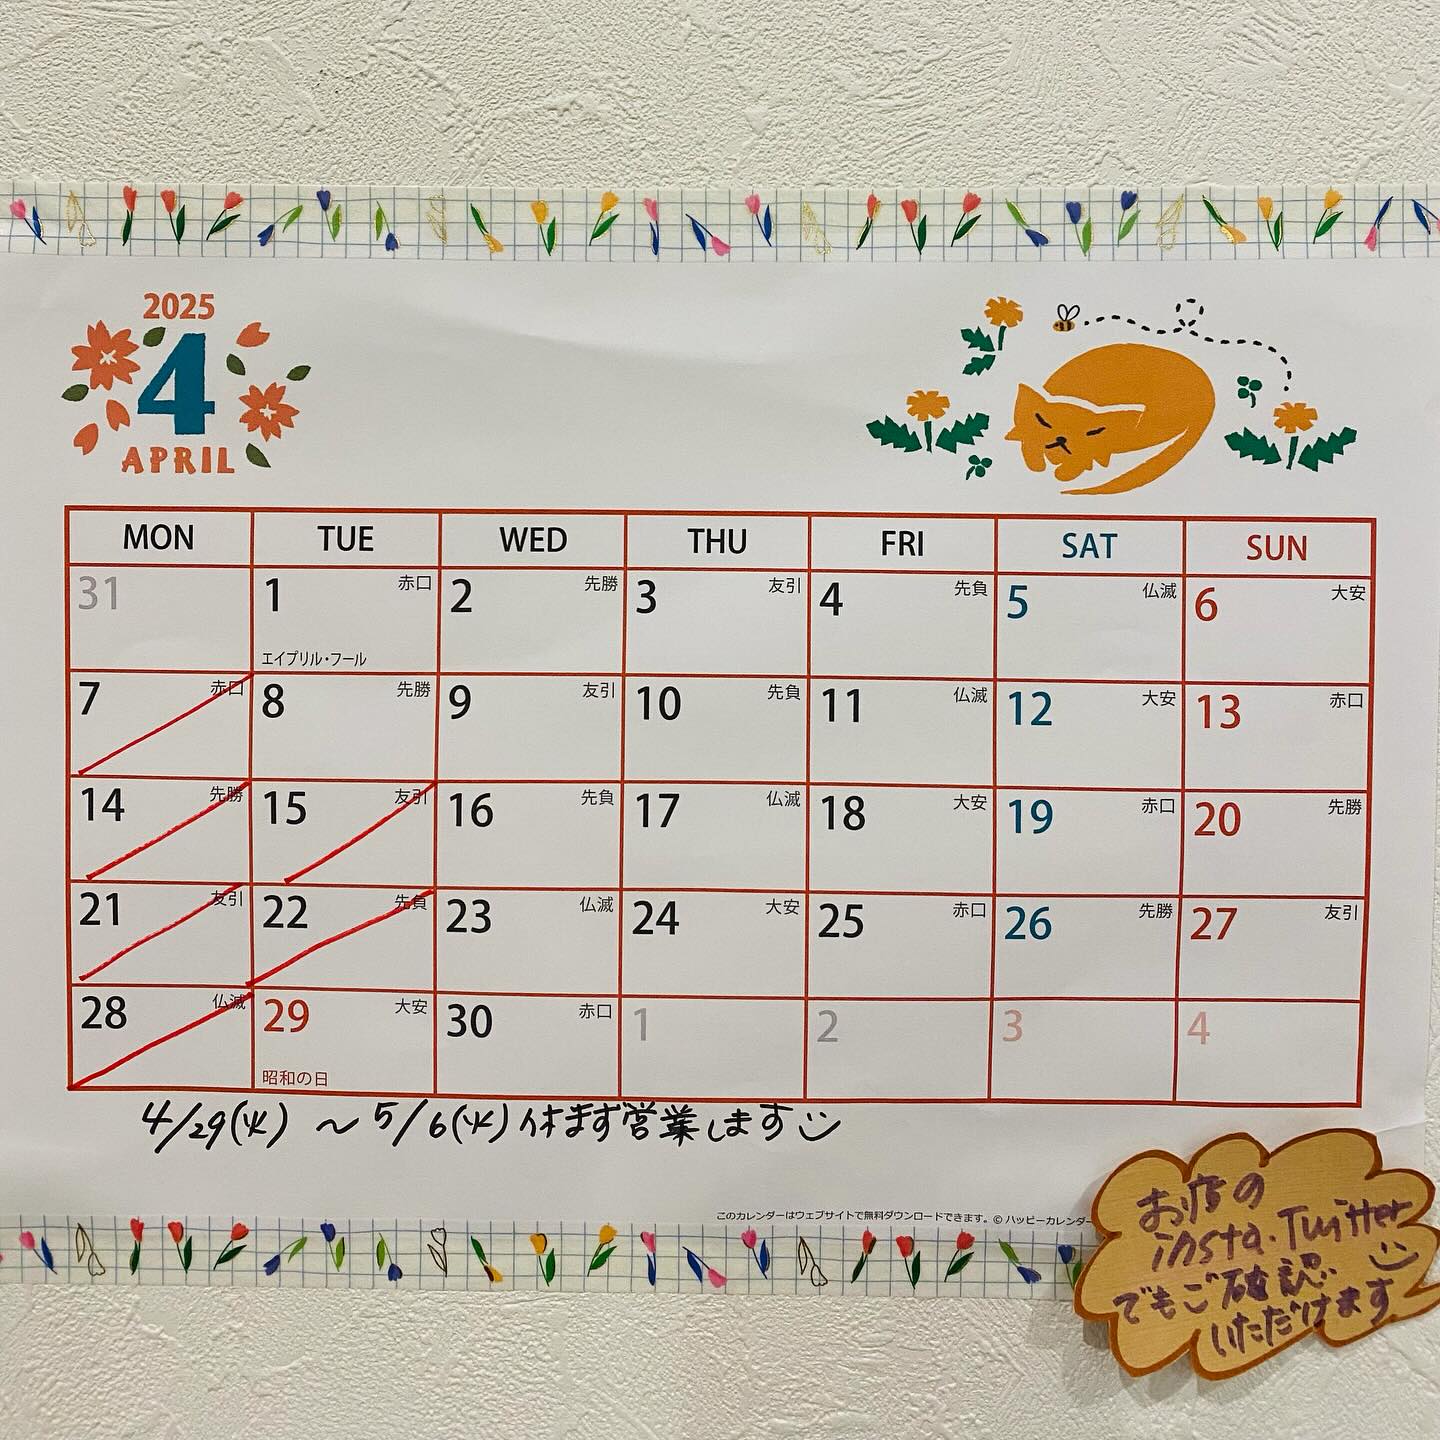 2025
4
APRIL
MON TUE WED THU FRI SAT SUN
31 1 赤口 2 先勝 3 友引 4 先負 5 仏滅 6 大安
エイプリル・フール
7 赤口 8 先勝 9 友引 10 先負 11 仏滅 12 大安 13 赤口
14 先勝 15 友引 16 先負 17 仏滅 18 大安 19 赤口 20 先勝
21 友引 22 先負 23 仏滅 24 大安 25 赤口 26 先勝 27 友引
28 仏滅 29 大安 30 赤口 1 2 3 4
昭和の日
4/29(火) 〜 5/6(火) 休まず営業します
このカレンダーはウェブサイトで無料ダウンロードできます。© ハッピーカレンダー
お店の
insta.Twitter
でもご確認
いただけます